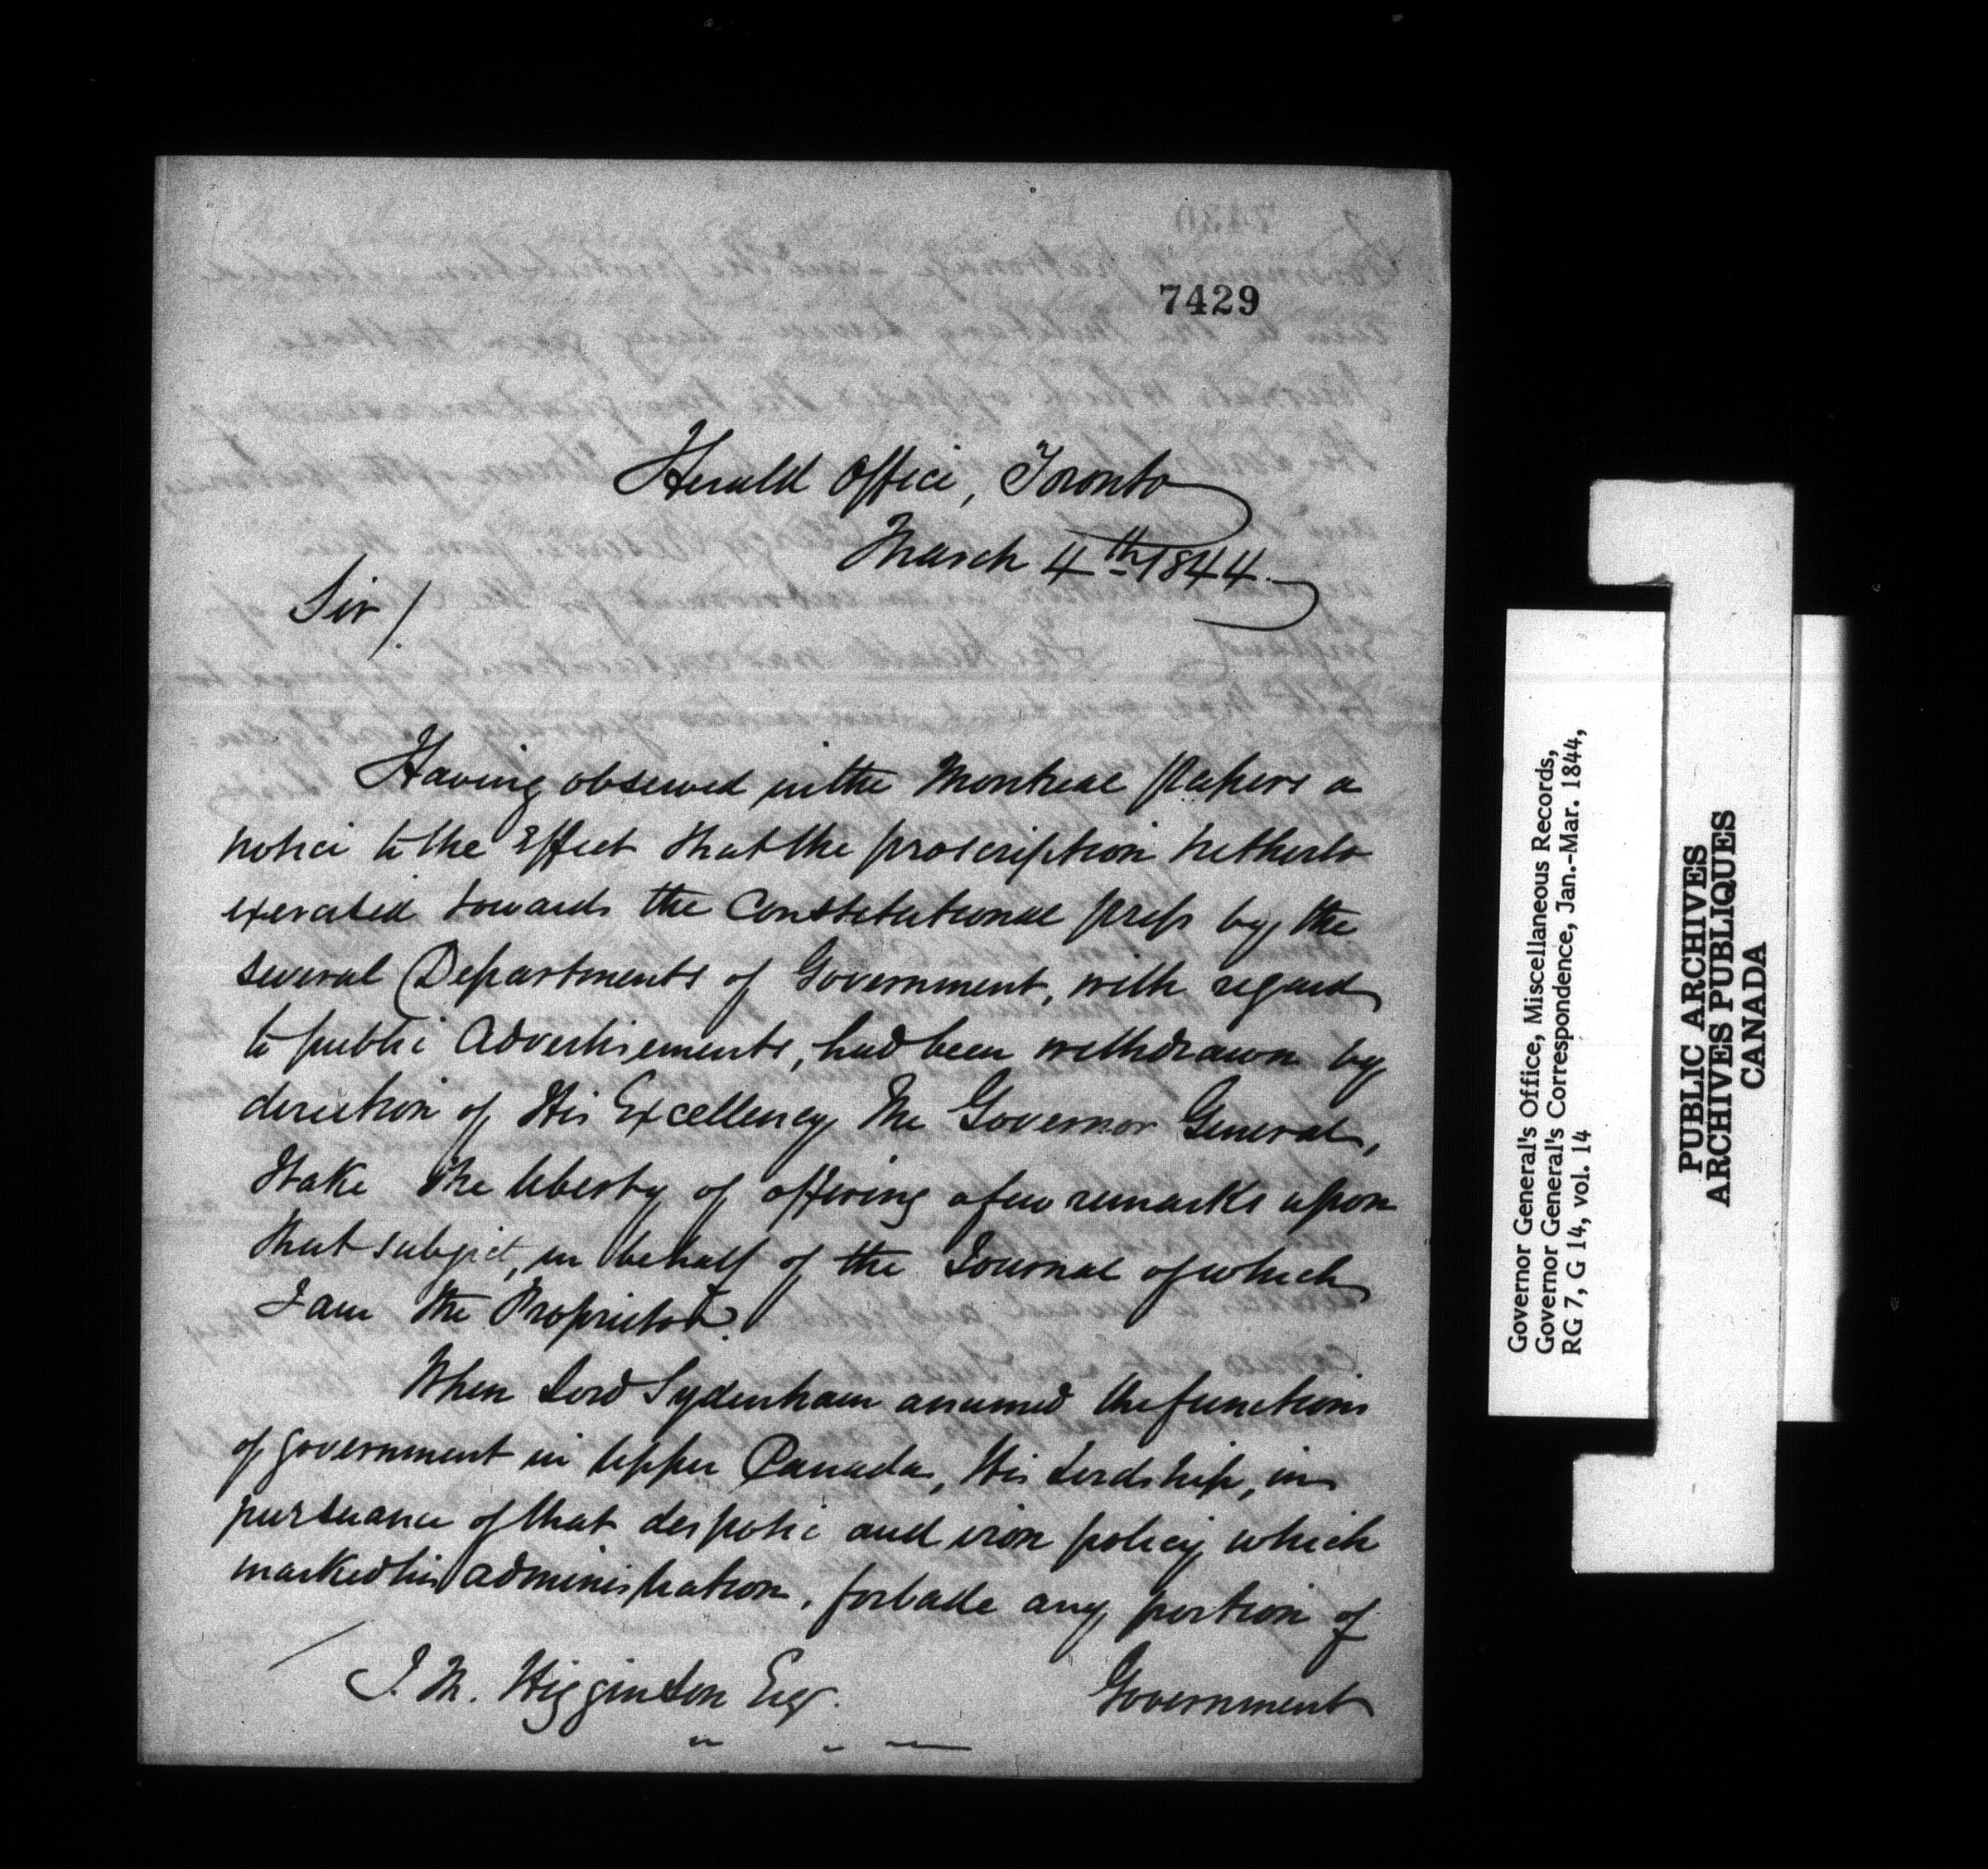 7429
Herald Office, Toronto
March 4th 1844.
Sir /.
Having observed in the Montreal Papers a
notice to the Effect that the proscription hitherto
exercised towards the Constitutional press by the
several Departments of Government, with regard
to public Advertisements, had been withdrawn by
direction of His Excellency The Governor General,
I take the liberty of offering a few remarks upon
that subject, in behalf of the Journal of which
I am the Proprietor.
When Lord Sydenham assumed the functions
of government in Upper Canada, His Lordship, in
pursuance of that despotic and iron policy which
marked his administration, forbade any portion of
J. M. Higginson Esqr.
Government
Governor General's Office, Miscellaneous Records,
Governor General's Correspondence, Jan.-Mar. 1844,
RG 7, G 14, vol. 14
PUBLIC ARCHIVES
ARCHIVES PUBLIQUES
CANADA